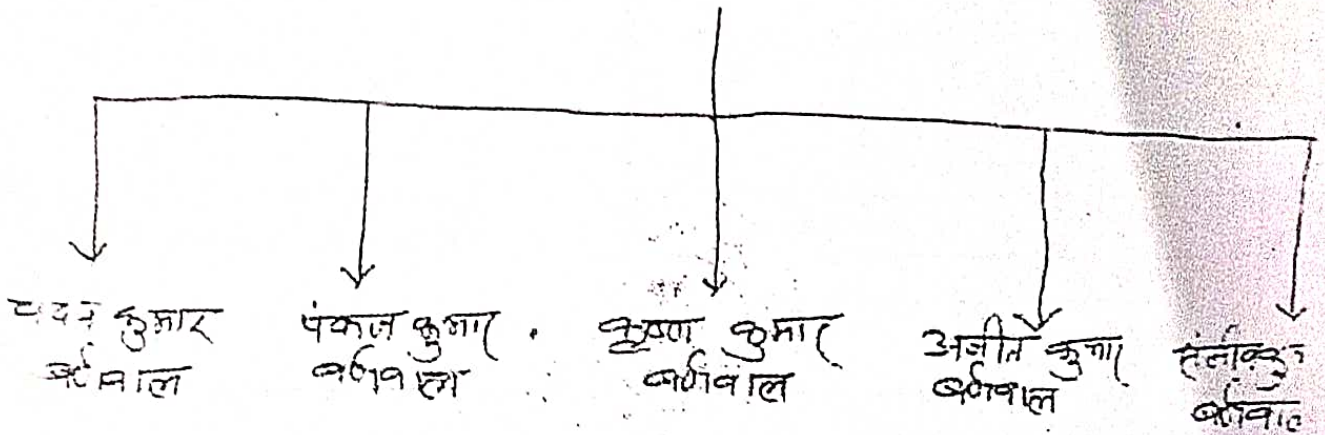 चंदन कुमार
बर्णवाल
पंकज कुमार
बर्णवाल
कृष्णा कुमार
बर्णवाल
अजीत कुमार
बर्णवाल
बर्णवाल